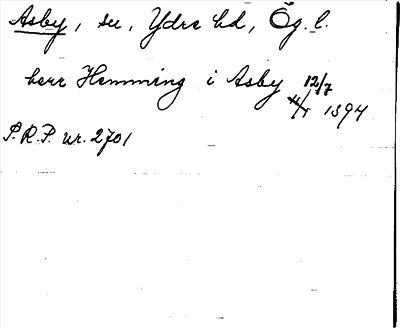 Asby, su, Ydre hd, Ög. l.
herr Hemming i Asby 12/7
1394
P.R.P. nr. 2701